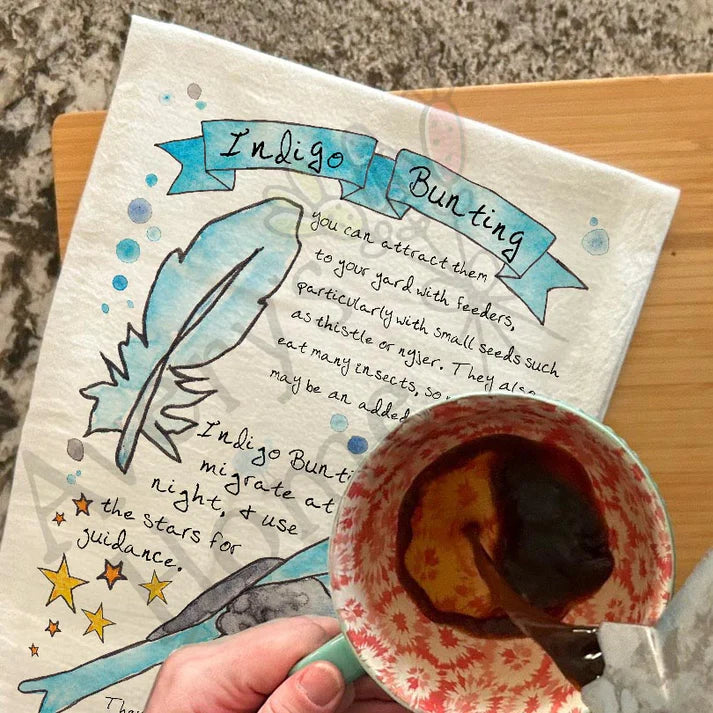 Indigo
Bunting
you can attract them
to your yard with feeders,
particularly with small seeds such
as thistle or nyjer. They also
eat many insects, so
may be an added
Indigo Bunti
migrate at
night, & use
the stars for
guidance.